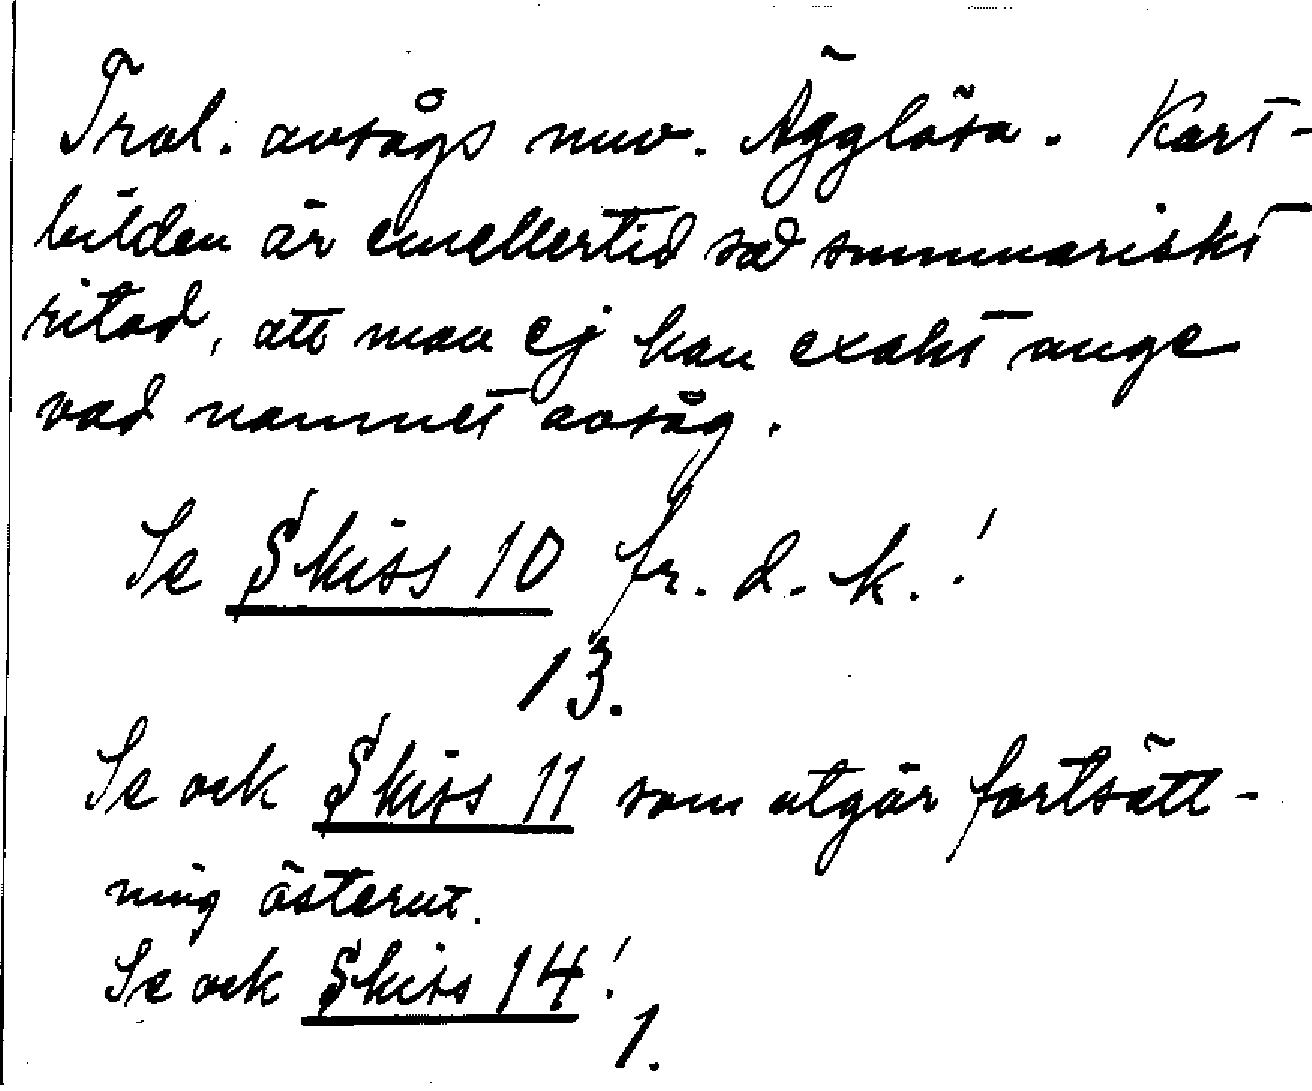 Trol. avsågs nuv. Ägglösa. Kart-
bilden är emellertid så summariskt
ritad, att man ej kan exakt ange
vad namnet avsåg.
Se Skiss 10 fr. d. k.!
13.
Se ock Skiss 11 som utgör fortsätt-
ning österut.
Se ock Skiss 14!
1.